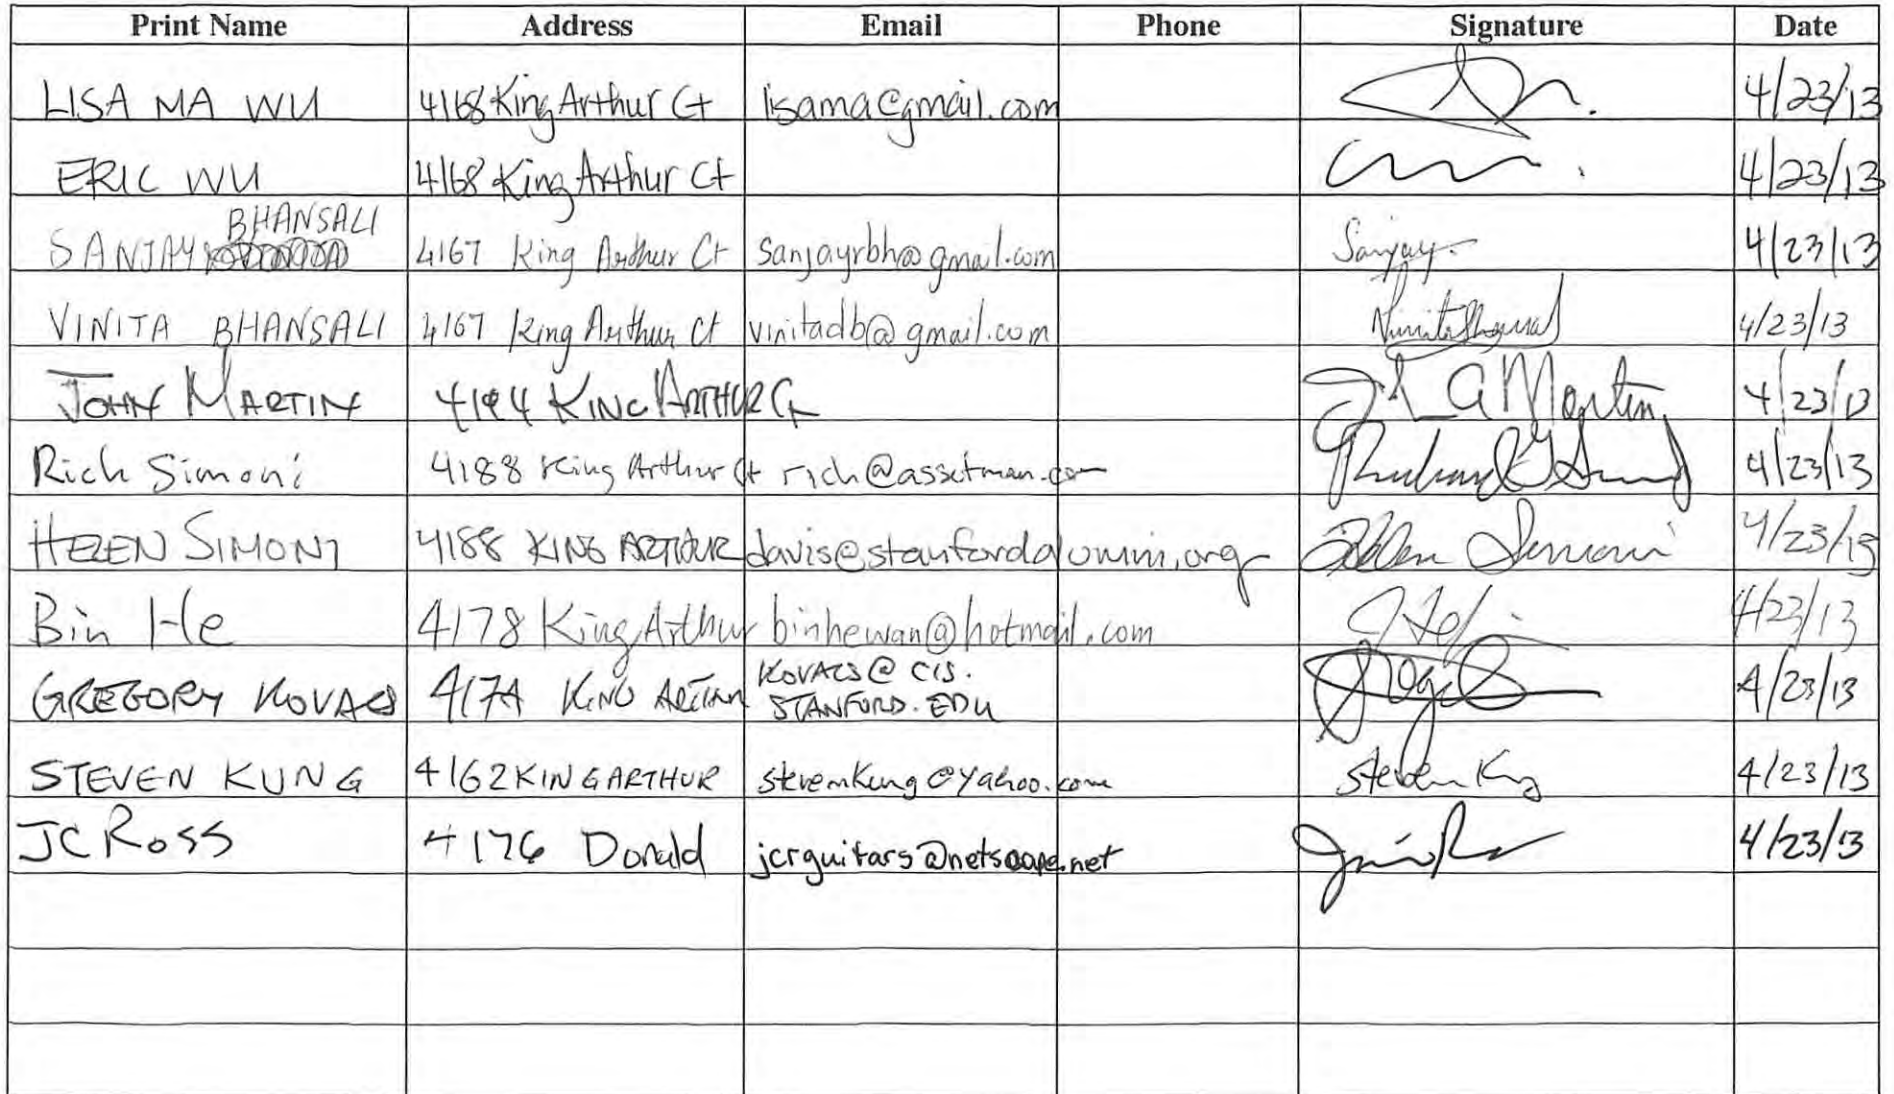 Print Name Address Email Phone Signature Date
LISA MA WU 4168 King Arthur Ct lisama@gmail.com 4/23/13
ERIC WU 4168 King Arthur Ct 4/23/13
BHANSALI
SANJAY 4167 King Arthur Ct sanjayrbh@gmail.com Sanjay 4/23/13
VINITA BHANSALI 4167 King Arthur Ct vinitadb@gmail.com 4/23/13
JOHN MARTIN KING ARTHUR Ct A Martin 4/23/13
Rich Simoni 4188 King Arthur Ct rich@assetman.com 4/23/13
HELEN SIMONI 4188 KING ARTHUR davis@stanfordalumni.org Helen Simoni 4/23/13
Bin He 4178 King Arthur binhewan@hotmail.com 4/23/13
KOVACS@CIS.
GREGORY KOVACS 4174 KING ARTHUR STANFORD.EDU 4/23/13
STEVEN KUNG 4162 KING ARTHUR stevemkung@yahoo.com Steven Kung 4/23/13
JC ROSS 4176 Donald jcrguitars@netscape.net 4/23/13